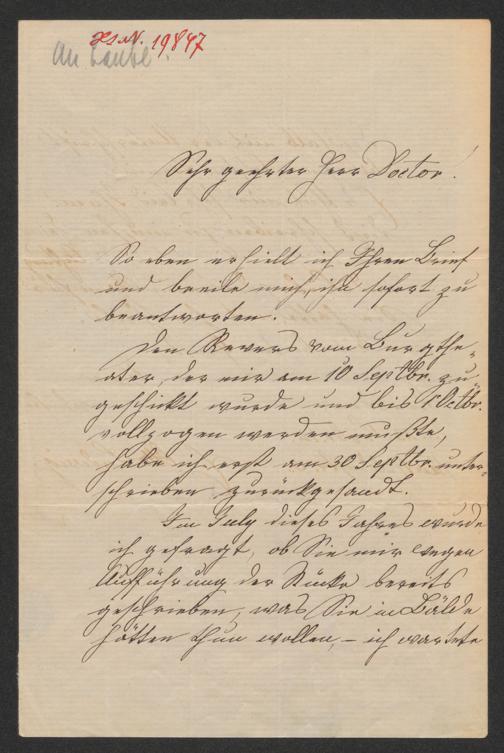 H.I.N. 19847
An Laube.
Sehr geehrter Herr Doctor!
So eben erhielt ich Ihren Brief
und beeile mich, ihn sofort zu
beantworten.
Den Revers vom Burgthe-
ater, der mir am 10 Septbr. zu-
geschickt wurde und bis 1 Octbr.
vollzogen werden mußte,
habe ich erst am 30 Septbr. unter-
schrieben zurückgesandt.
Im July dieses Jahres wurde
ich gefragt, ob Sie mir wegen
Aufführung der Stücke bereits
geschrieben, was Sie in Bälde
hätten thun wollen, – ich wartete